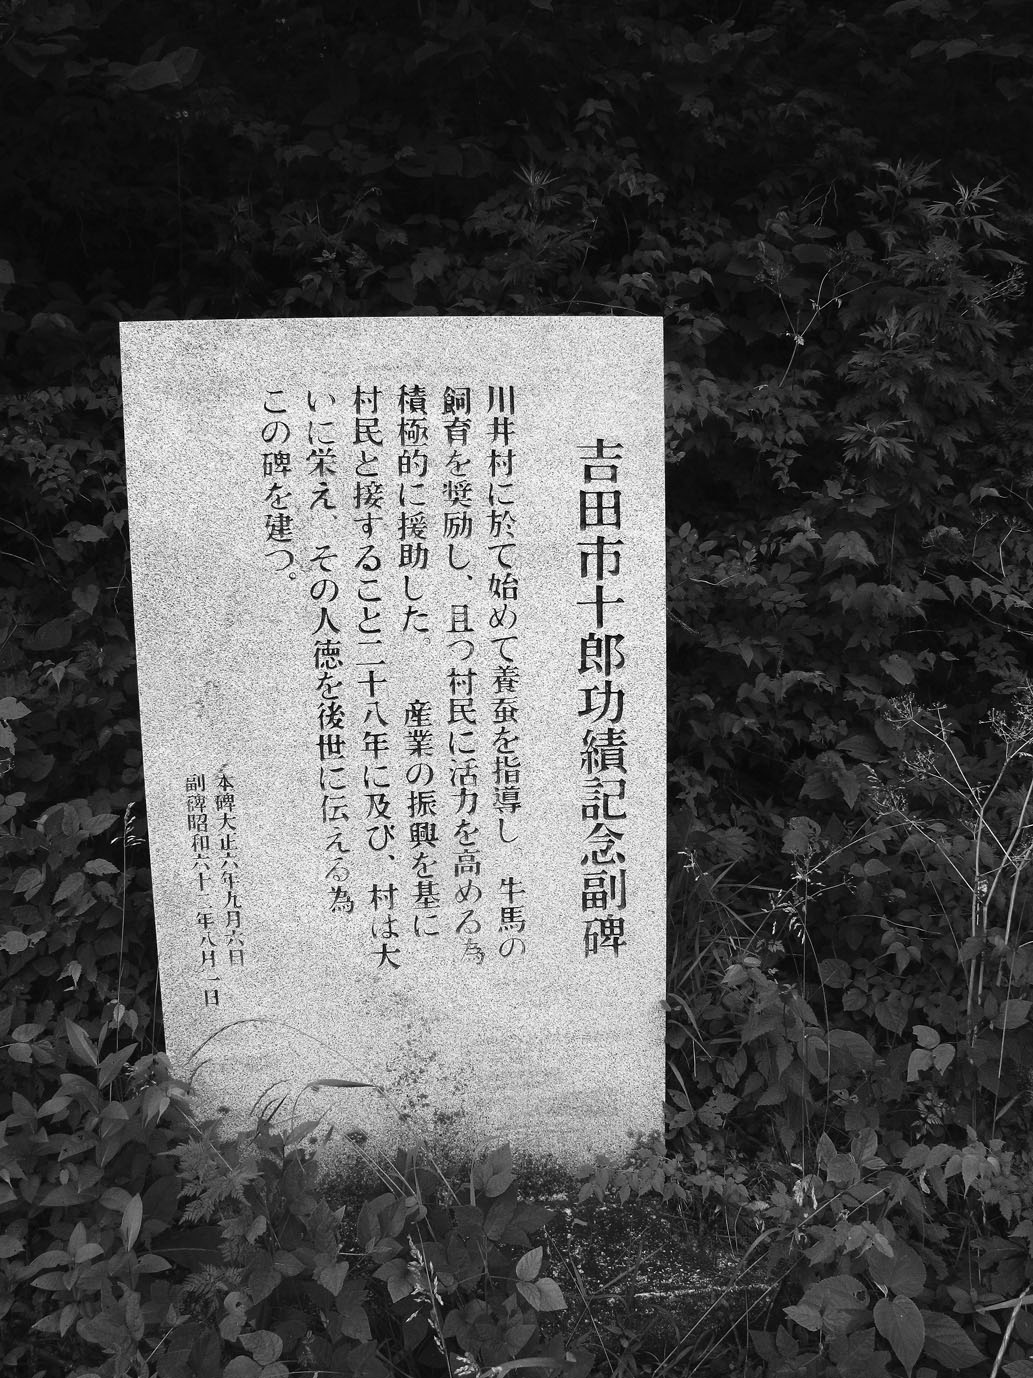 吉田市十郎功績記念副碑
川井村に於て始めて養蚕を指導し、牛馬の
飼育を奨励し、且つ村民に活力を高める為
積極的に援助した。産業の振興を基に
村民と接すること二十八年に及び、村は大
いに栄え、その人徳を後世に伝える為
この碑を建つ。
本碑大正六年九月六日
副碑昭和六十二年八月一日